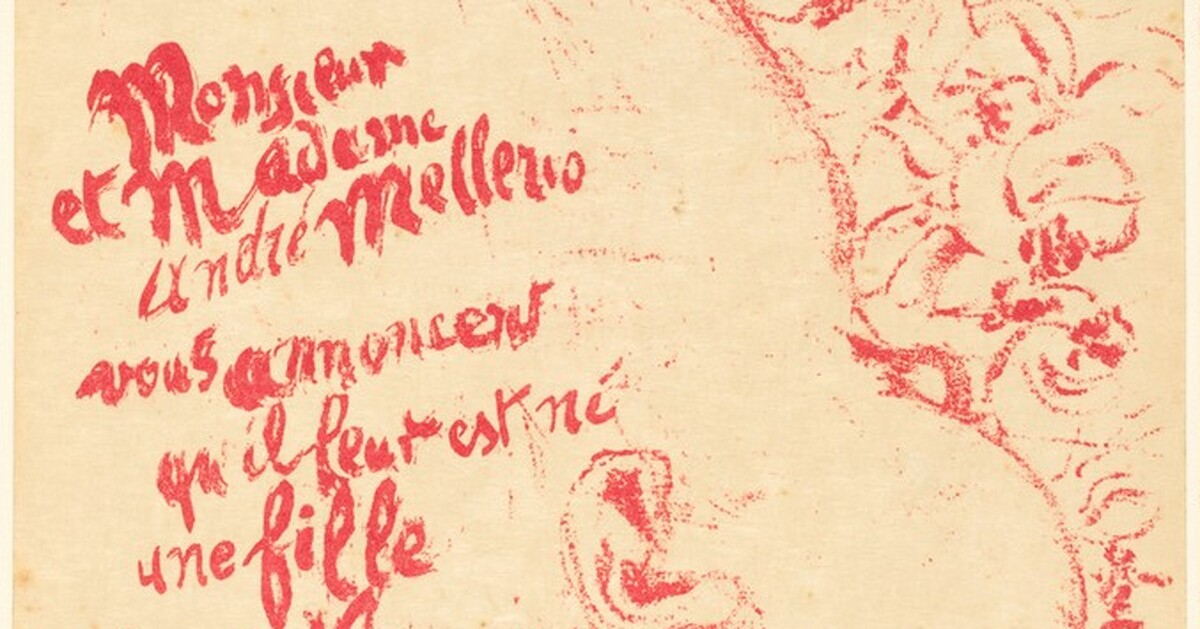 Monsieur
et Madame
André Mellerio
vous annoncent
qu'il leur est né
une fille